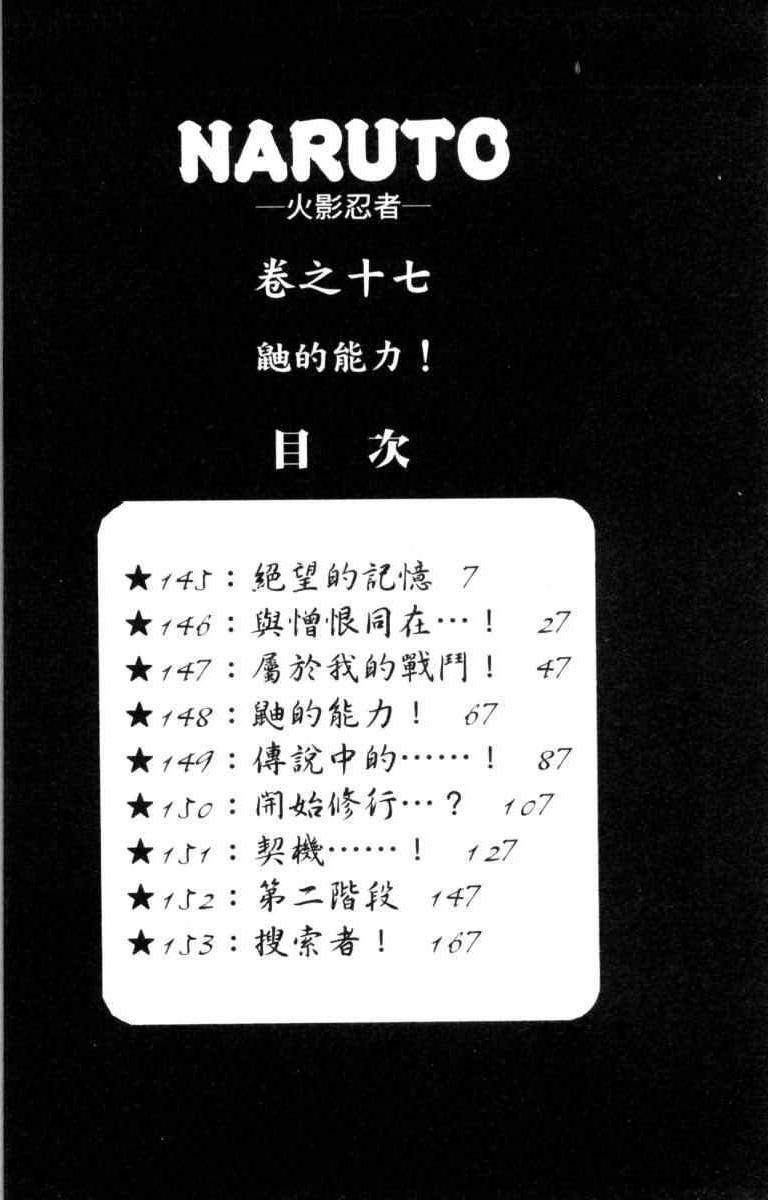 NARUTO
—火影忍者—
卷之十七
鼬的能力！
目 次
★145：絕望的記憶 7
★146：與憎恨同在…！ 27
★147：屬於我的戰鬥！ 47
★148：鼬的能力！ 67
★149：傳說中的……！ 87
★150：開始修行…？ 107
★151：契機……！ 127
★152：第二階段 147
★153：搜索者！ 167